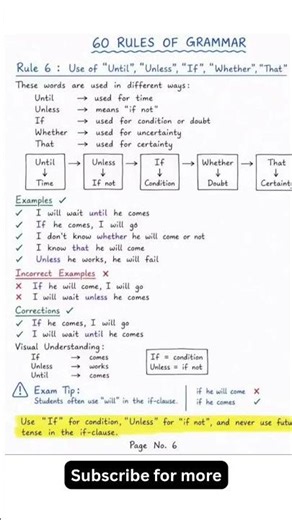 60 RULES OF GRAMMAR
Rule 6 : Use of "Until", "Unless", "If", "Whether", "That"
These words are used in different ways:
Until → used for time
Unless → means "if not"
If → used for condition or doubt
Whether → used for uncertainty
That → used for certainty
Until → Unless → If → Whether → That
↓ ↓ ↓ ↓ ↓
Time If not Condition Doubt Certaint
Examples ✓
✓ I will wait until he comes
✓ If he comes, I will go
✓ I don't know whether he will come or not
✓ I know that he will come
✓ Unless he works, he will fail
Incorrect Examples ✗
✗ If he will come, I will go
✗ I will wait unless he comes
Corrections ✓
✓ If he comes, I will go
✓ I will wait until he comes
Visual Understanding:
If → comes
Unless → works
Until → comes
If = condition
Unless = if not
Exam Tip:
Students often use "will" in the if-clause.
if he will come ✗
if he comes ✓
Use "If" for condition, "Unless" for "if not", and never use futu
tense in the if-clause.
Page No. 6
Subscribe for more